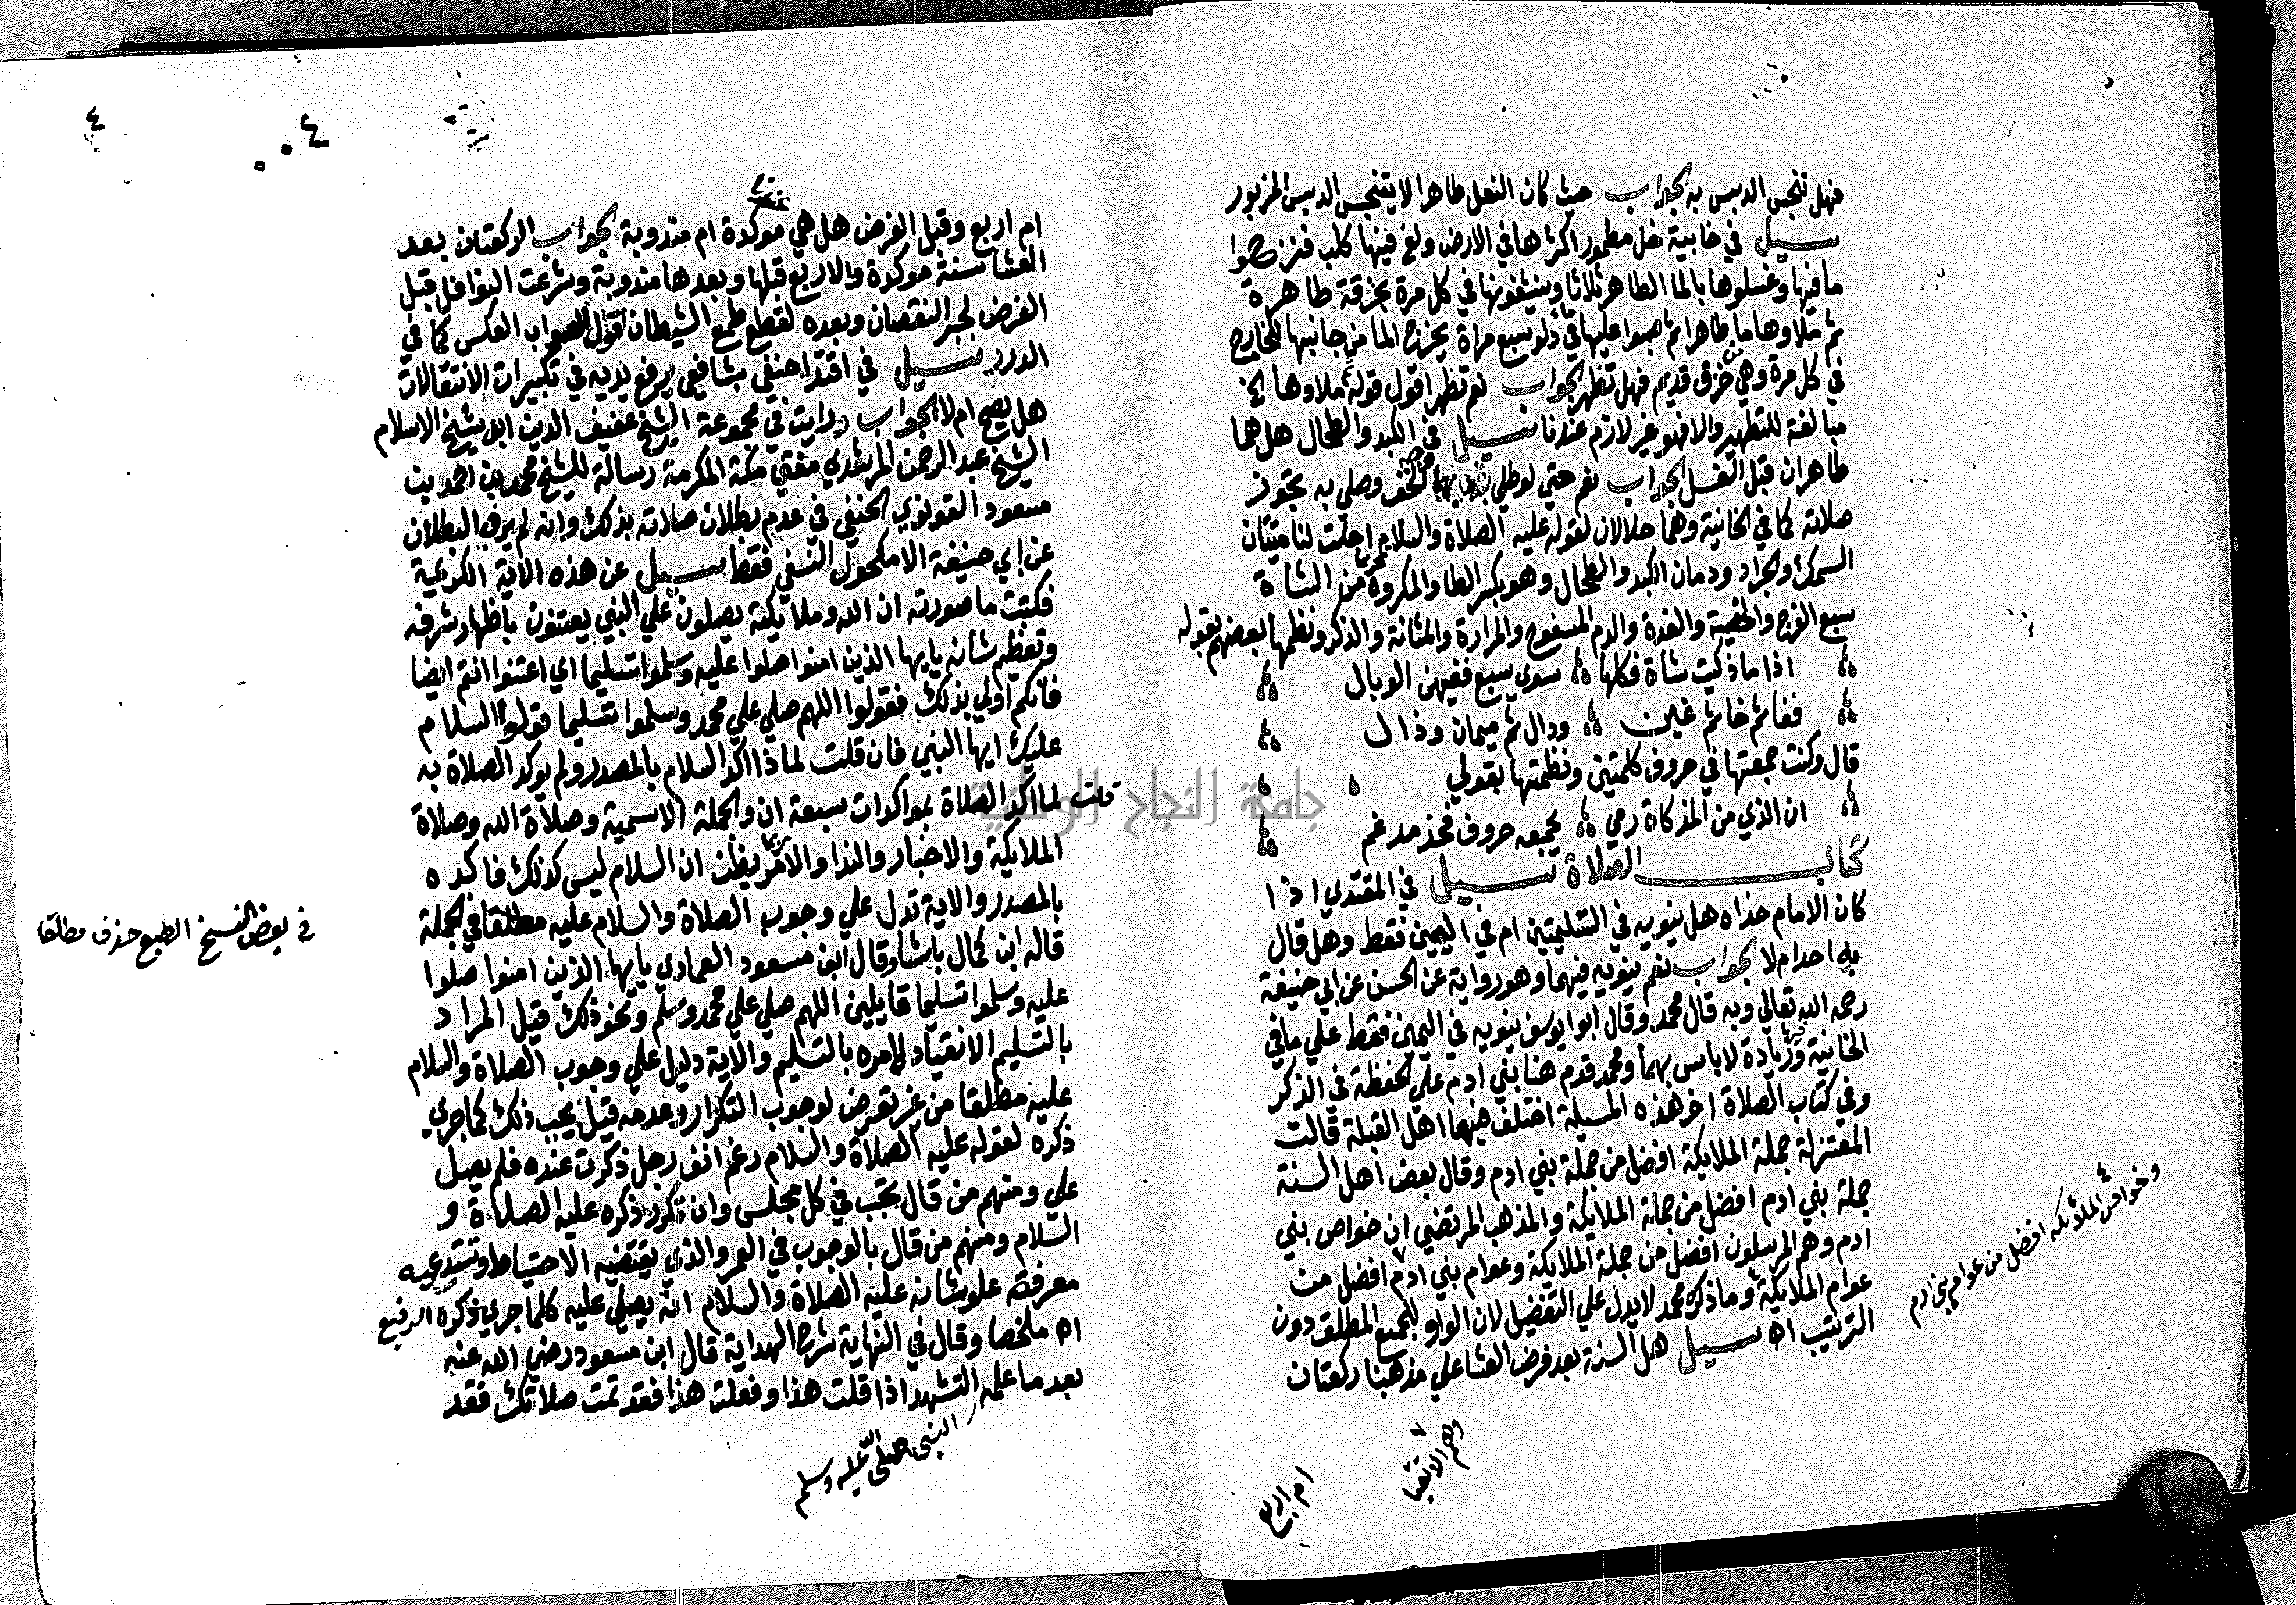 فهل تنجس الدبس به الجواب حيث كان النعل طاهرا لا يتنجس الدبس المزبور
سيل في خابية خل مطمور اكثرها في الارض ولغ فيها كلب فنزحوا
ما فيها وغسلوها بالما الطاهر ثلاثا وينشفونها في كل مرة بخرقة طاهرة
ثم ملاوها ما طاهرا ثم صبوا عليها في دلو سبع مراة يخرج الما من جانبها للخارج
في كل مرة وهي خزف قديم فهل تطهر الجواب نعم تطهر اقول قوله ثم ملاوها الخ
مبالغة للتطهير والا فهو غير لازم عندنا سيل في الكبد والطحال هل هما
طاهران قبل الغسل الجواب نعم حتي لو طلي بهما الخف وصلي به تجوز
صلاته كما في الخانية وهما حلالان لقوله عليه الصلاة والسلام احلت لنا ميتتان
السمك والجراد ودمان الكبد والطحال وهو بكسر الطا والمكروه تحريما من الشاة
سبع الفرج والخصية والغدة والدم المسفوح والمرارة والمثانة والذكر ونظمها بعضهم بقوله
اذا ما ذكيت شاة فكلها سوي سبع ففيهن الوبال
ففا ثم خا ثم غين ودال ثم ميمان وذال
قال وكنت جمعتها في حروف كلمتين ونظمتها بقولي
ان الذي من المذكاة رمي يجمعه حروف فخذ مدغم
كتاب الصلاة سيل في المقتدي اذا
كان الامام حذاه هل ينويه في التسليمتين ام في اليمين فقط وهل قال
به احد ام لا الجواب نعم ينويه فيهما وهو رواية عن الحسن عن ابي حنيفة
رحمه الله تعالي وبه قال محمد وقال ابو يوسف ينويه في اليمين فقط علي ما في
الخانية وزيادة لاباس بهما ومحمد قدم هنا بني ادم علي الحفظة في الذكر
وفي كتاب الصلاة اخر هذه المسيلة اختلف فيها اهل القبلة قالت
المعتزلة جملة الملايكة افضل من جملة بني ادم وقال بعض اهل السنة
جملة بني ادم افضل من جملة الملايكة والمذهب المرتضي ان خواص بني
ادم وهم المرسلون افضل من جملة الملايكة وعوام بني ادم افضل من
عوام الملايكة وما ذكره محمد لا يدل علي التفضيل لان الواو للجمع المطلق دون
الترتيب اه سيل هل السنة بعد فرض العشا علي مذهبنا ركعتان
وخواص الملائكه افضل من عوام بني ادم
وهم الاتقيا
ام اربع
٤
٤
ام اربع وقبل الفرض هل هي موكدة ام مندوبة الجواب الركعتان بعد
العشا سنة موكدة والاربع قبلها وبعدها مندوبة وشرعت النوافل قبل
الفرض لجبر النقصان وبعده لقطع طمع الشيطان اقول الصواب العكس كما في
الدرر سيل في اقتدا حنفي بشافعي يرفع يديه في تكبيرات الانتقالات
هل يصح ام لا الجواب رايت في مجموعة الشيخ عفيف الدين ابن شيخ الاسلام
الشيخ عبد الرحمن المرشدي مفتي مكة المكرمة رسالة للشيخ محمد بن احمد بن
مسعود القونوي الحنفي في عدم بطلان صلاته بذلك وانه لم يرو البطلان
عن ابي حنيفة الا مكحول النسفي فقط سيل عن هذه الاية الكريمة
فكتبت ما صورته ان الله وملايكته يصلون علي النبي يعتنون باظهار شرفه
وتعظيم شانه يايها الذين امنوا صلوا عليه وسلموا تسليما اي اعتنوا انتم ايضا
فانكم اولي بذلك فقولوا اللهم صلي علي محمد وسلموا تسليما قولوا السلام
عليك ايها النبي فان قلت لماذا اكد السلام بالمصدر ولم يوكد الصلاة به
قلت لما اكد الصلاة بمواكدات سبعة ان والجملة الاسمية وصلاة الله وصلاة
الملايكة والاخبار والندا والامر ربما يظن ان السلام ليس كذلك فاكده
بالمصدر والاية تدل علي وجوب الصلاة والسلام عليه مطلقا في الجملة
قاله ابن كمال باشا وقال ابن مسعود العمادي يايها الذين امنوا صلوا
عليه وسلموا تسليما قايلين اللهم صلي علي محمد وسلم ونحو ذلك قيل المراد
بالتسليم الانقياد لامره بالتسليم والاية دليل علي وجوب الصلاة والسلام
عليه مطلقا من غير تعرض لوجوب التكرار وعدمه قيل يجب ذلك كلما جري
ذكره لقوله عليه الصلاة والسلام رغم انف رجل ذكرت عنده فلم يصل
علي ومنهم من قال يجب في كل مجلس وان تكرر ذكره عليه الصلاة و
السلام ومنهم من قال بالوجوب في العمر والذي يقتضيه الاحتياط وتستدعيه
معرفة علو شانه عليه الصلاة والسلام انه يصلي عليه كلما جري ذكره الرفيع
اه ملخصا وقال في النهاية شرح الهداية قال ابن مسعود رضي الله عنه
بعد ما علمه التشهد اذا قلت هذا وفعلت هذا فقد تمت صلاتك فقد
النبي صلي الله عليه وسلم
في بعض النسخ الطبع حذف مطلقا
جامعة النجاح الوطنية